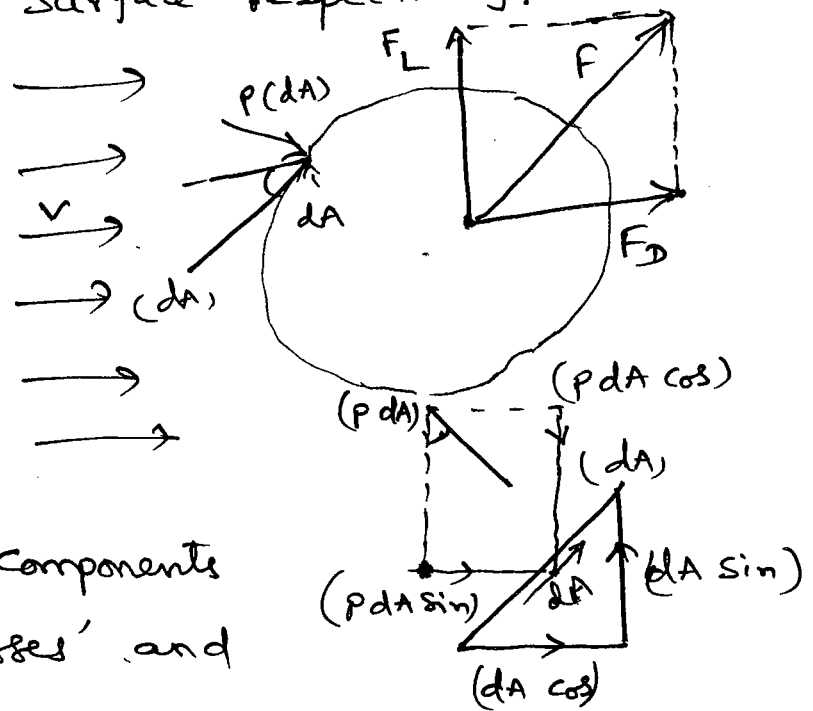 Surface
F_L
F
P(dA)
V
dA
F_D
(dA)
(P dA)
(P dA Cos)
(dA)
Components
(P dA Sin)
dA
(dA Sin)
and
(dA Cos)